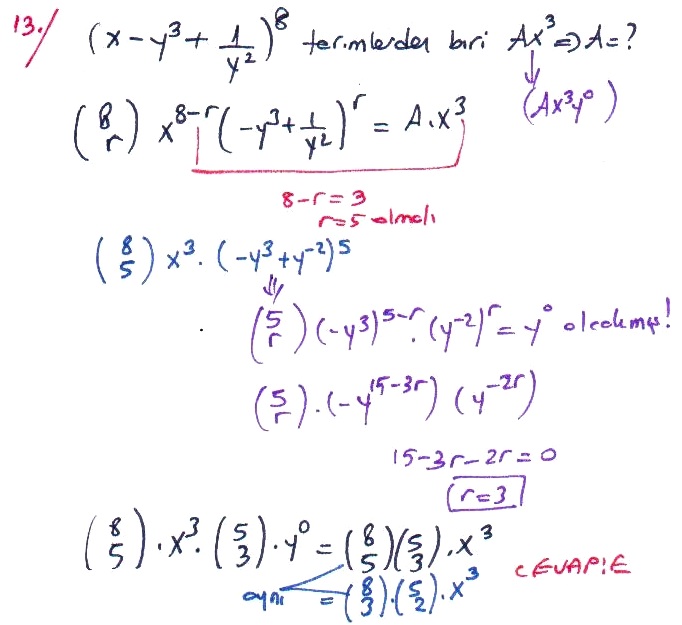 13./ (x-y³+1/y²)⁸ terimlerden biri Ax³⇒A=?
(8 r) x⁸⁻ʳ(-y³+1/y²)ʳ = A.x³ (Ax³y⁰)
8-r=3
r=5 olmalı
(8 5) x³.(-y³+y⁻²)⁵
(5 r)(-y³)⁵⁻ʳ.(y⁻²)ʳ=y⁰ olacakmış!
(5 r).(-y¹⁵⁻³ʳ)(y⁻²ʳ)
15-3r-2r=0
r=3
(8 5).x³.(5 3).y⁰=(8 5)(5 3).x³
aynı =(8 3).(5 2).x³ CEVAP:E